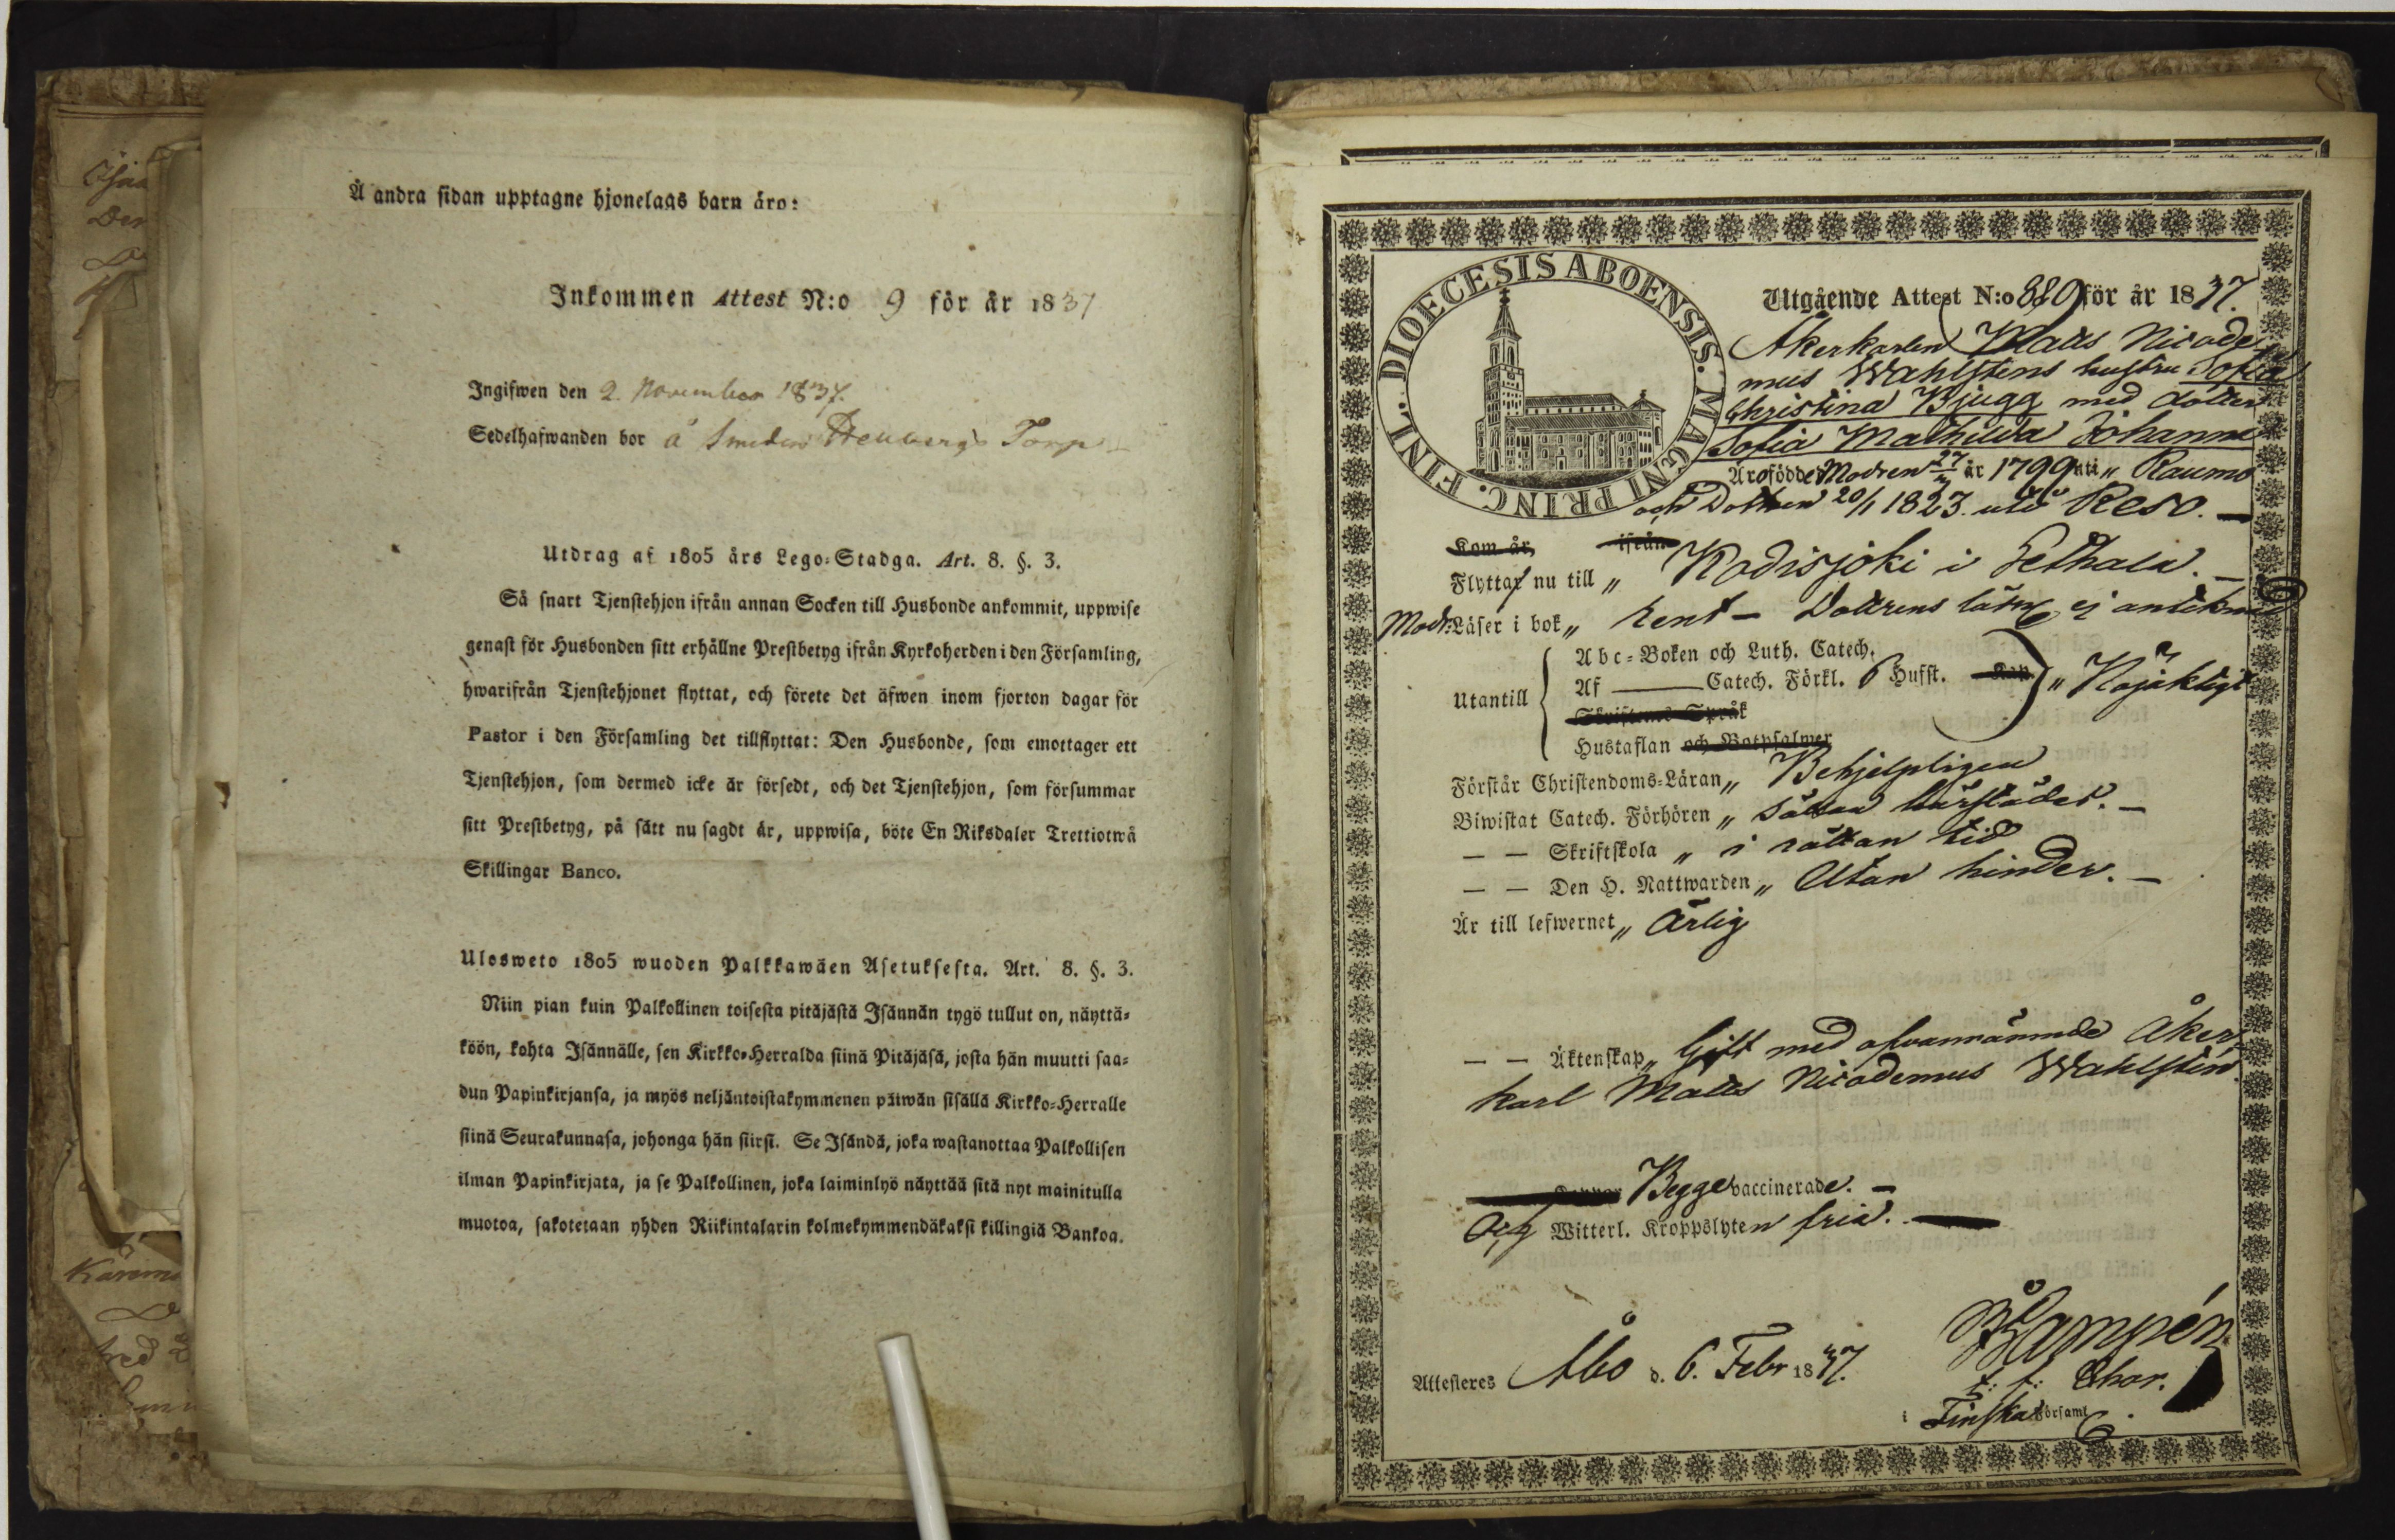 Å andra sidan upptagne hjonelags barn äro:
Inkommen Attest N:o 9 för år 1837
Ingifwen den 2. November 1837.
Sedelhafwanden bor å Smeden Torp
Utdrag af 1805 års Lego-Stadga. Art. 8. §. 3.
Så snart Tjenstehjon ifrån annan Socken till Husbonde ankommit, uppwise
genast för Husbonden sitt erhållne Prestbetyg ifrån Kyrkoherden i den Församling,
hwarifrån Tjenstehjonet flyttat, och förete det äfwen inom fjorton dagar för
Pastor i den Församling det tillflyttat: Den Husbonde, som emottager ett
Tjenstehjon, som dermed icke är försedt, och det Tjenstehjon, som försummar
sitt Prestbetyg, på sätt nu sagdt är, uppwisa, böte En Riksdaler Trettiotwå
Skillingar Banco.
Ulosweto 1805 wuoden Palkkawäen Asetuksesta. Art. 8. §. 3.
Niin pian kuin Palkollinen toisesta pitäjästä Isännän tygö tullut on, näyttä-
köön, kohta Isännälle, sen Kirkko-Herralda siinä Pitäjäsä, josta hän muutti saa-
dun Papinkirjansa, ja myös neljäntoistakymmenen päiwän sisällä Kirkko-Herralle
siinä Seurakunnasa, johonga hän siirsi. Se Isändä, joka wastanottaa Palkollisen
ilman Papinkirjata, ja se Palkollinen, joka laiminlyö näyttää sitä nyt mainitulla
muotoa, sakotetaan yhden Riikintalarin kolmekymmendäkaksi killingiä Bankoa.
DIOECESIS ABOENSIS. MAGNI PRINC. FINL.
Utgående Attest N:o 880 för år 1837.
Åkerkarlen Matts Nicode
mus Wahlstens hustru Sofia
Christina Bjugg med dotter
Sofia Mathilda Johanna
Äro födde Modren 27/ år 1799 uti „ Raumo
och Dottren 20/1 1823. uti Reso. —
Kom år ifrån
Flyttar nu till „ Kodisjoki i Lethala. —
Modr: Läser i bok „ rent — Dottrens läsn: ej anteknad
Abc-Boken och Luth. Catech.
Utantill Af — Catech. Förkl. Husst. Kap „ Nöjaktigt
Skriftenes Språk
Hustaflan och Botpsalmer
Förstår Christendoms-Läran „ Behjelpligen
Biwistat Catech. Förhören „ Sällan härstädes. —
— — Skriftskola „ i rättan tid
— — Den H. Nattwarden „ Utan hinder. —
Är till lefwernet „ Ärlig
— — Äktenskap „ Gift med ofvannämnde Åker
karl Matts Nicodemus Wahlstén
Begge vaccinerade. —
Och Witterl. Kroppslyten fria. —
Attesteres Åbo d. 6. Febr 1837.
t. f. Char.
i Finska Församl.